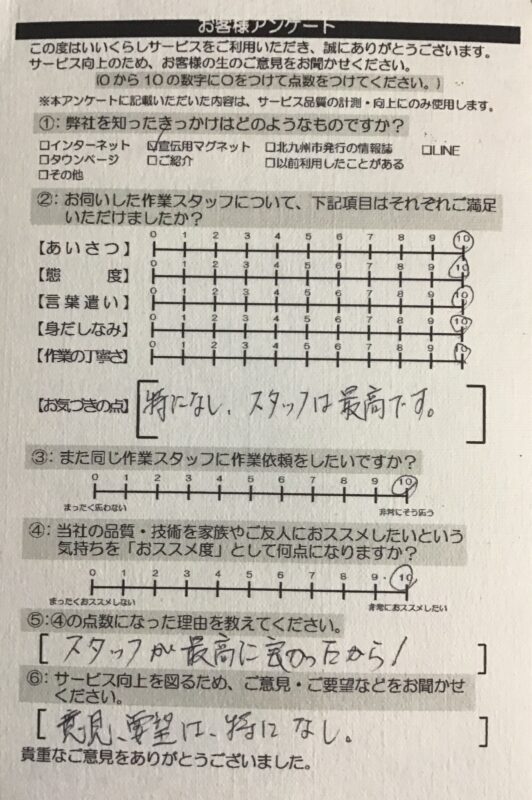 お客様アンケート
この度はいいくらしサービスをご利用いただき、誠にありがとうございます。
サービス向上のため、お客様の生のご意見をお聞かせください。
(0から10の数字に○をつけて点数をつけてください。)
※本アンケートに記載いただいた内容は、サービス品質の計測・向上にのみ使用します。
①：弊社を知ったきっかけはどのようなものですか？
□インターネット ☑宣伝用マグネット □北九州市発行の情報誌 □LINE
□タウンページ □ご紹介 □以前利用したことがある
□その他
②：お伺いした作業スタッフについて、下記項目はそれぞれご満足
いただけましたか？
0 1 2 3 4 5 6 7 8 9 10
【あいさつ】
0 1 2 3 4 5 6 7 8 9 10
【態　度】
0 1 2 3 4 5 6 7 8 9 10
【言葉遣い】
0 1 2 3 4 5 6 7 8 9 10
【身だしなみ】
0 1 2 3 4 5 6 7 8 9 10
【作業の丁寧さ】
【お気づきの点】 [特になし、スタッフは最高です。]
③：また同じ作業スタッフに作業依頼をしたいですか？
0 1 2 3 4 5 6 7 8 9 10
まったく思わない 非常にそう思う
④：当社の品質・技術を家族やご友人におススメしたいという
気持ちを「おススメ度」として何点になりますか？
0 1 2 3 4 5 6 7 8 9 10
まったくおススメしない 非常におススメしたい
⑤：④の点数になった理由を教えてください。
[スタッフが最高に良かったから!]
⑥：サービス向上を図るため、ご意見・ご要望などをお聞かせ
ください。
[意見、要望は、特になし。]
貴重なご意見をありがとうございました。